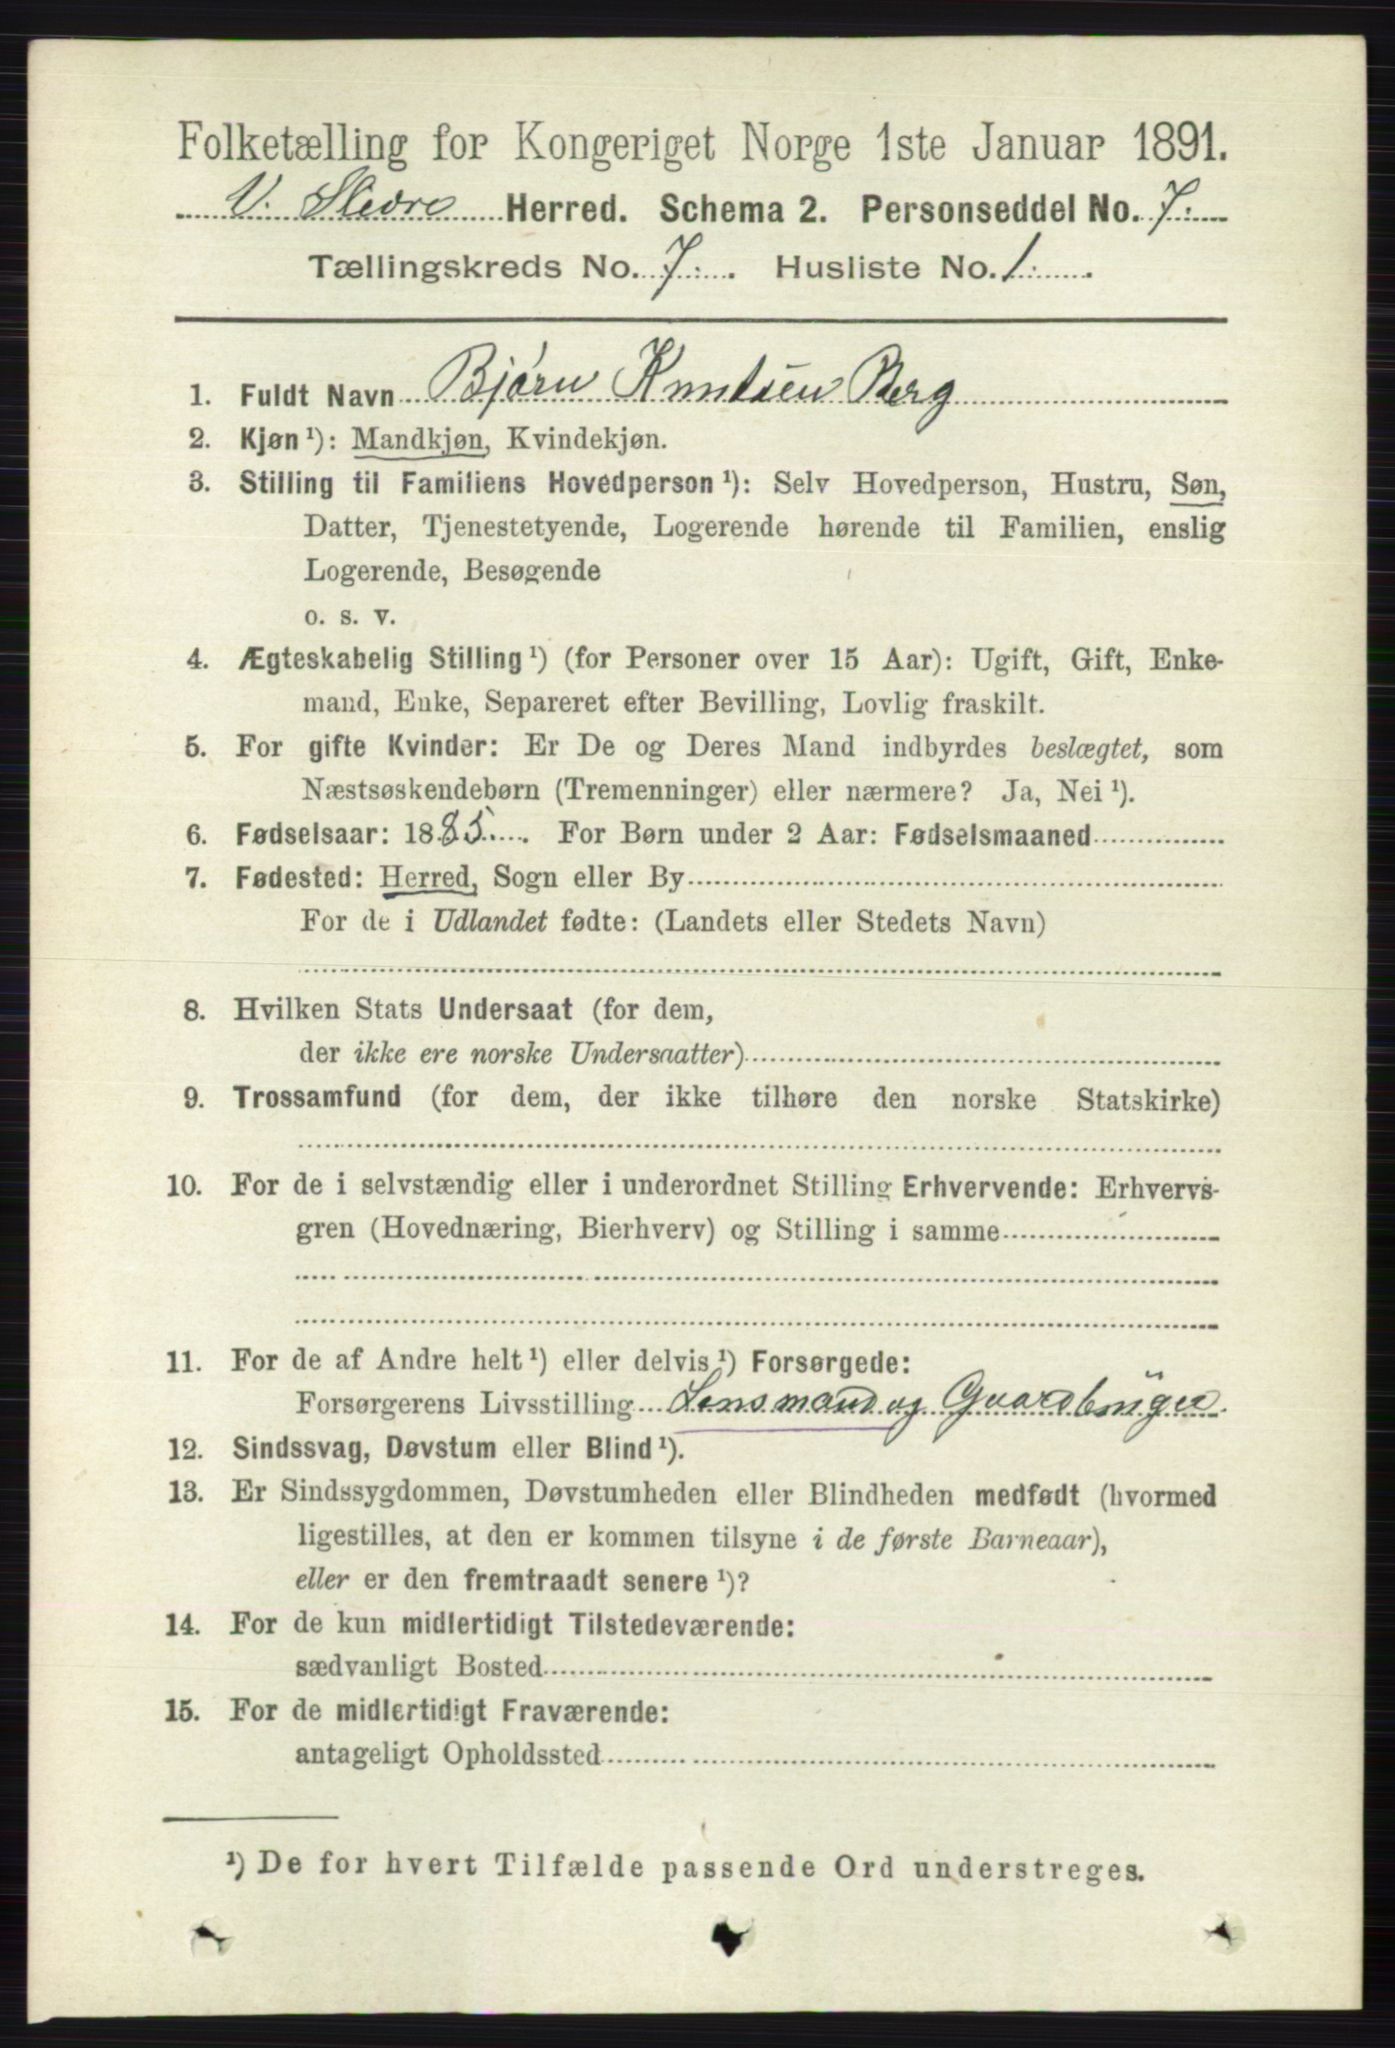 Folketælling for Kongeriget Norge 1ste Januar 1891.
V. Slidre Herred. Schema 2. Personseddel No. 7.
Tællingskreds No. 7. Husliste No. 1.
1. Fuldt Navn Bjørn Knudsen Berg
2. Kjøn ¹): Mandkjøn, Kvindekjøn.
3. Stilling til Familiens Hovedperson ¹): Selv Hovedperson, Hustru, Søn,
Datter, Tjenestetyende, Logerende hørende til Familien, enslig
Logerende, Besøgende
o. s. v.
4. Ægteskabelig Stilling ¹) (for Personer over 15 Aar): Ugift, Gift, Enke-
mand, Enke, Separeret efter Bevilling, Lovlig fraskilt.
5. For gifte Kvinder: Er De og Deres Mand indbyrdes beslægtet, som
Næstsøskendebørn (Tremenninger) eller nærmere? Ja, Nei ¹).
6. Fødselsaar: 1885. For Børn under 2 Aar: Fødselsmaaned
7. Fødested: Herred, Sogn eller By
For de i Udlandet fødte: (Landets eller Stedets Navn)
8. Hvilken Stats Undersaat (for dem,
der ikke ere norske Undersaatter)
9. Trossamfund (for dem, der ikke tilhøre den norske Statskirke)
10. For de i selvstændig eller i underordnet Stilling Erhvervende: Erhvervs-
gren (Hovednæring, Bierhverv) og Stilling i samme
11. For de af Andre helt ¹) eller delvis ¹) Forsørgede:
Forsørgerens Livsstilling Lensmand og Gaardbruger.
12. Sindssvag, Døvstum eller Blind ¹).
13. Er Sindssygdommen, Døvstumheden eller Blindheden medfødt (hvormed
ligestilles, at den er kommen tilsyne i de første Barneaar),
eller er den fremtraadt senere ¹)?
14. For de kun midlertidigt Tilstedeværende:
sædvanligt Bosted
15. For de midlertidigt Fraværende:
antageligt Opholdssted
¹) De for hvert Tilfælde passende Ord understreges.